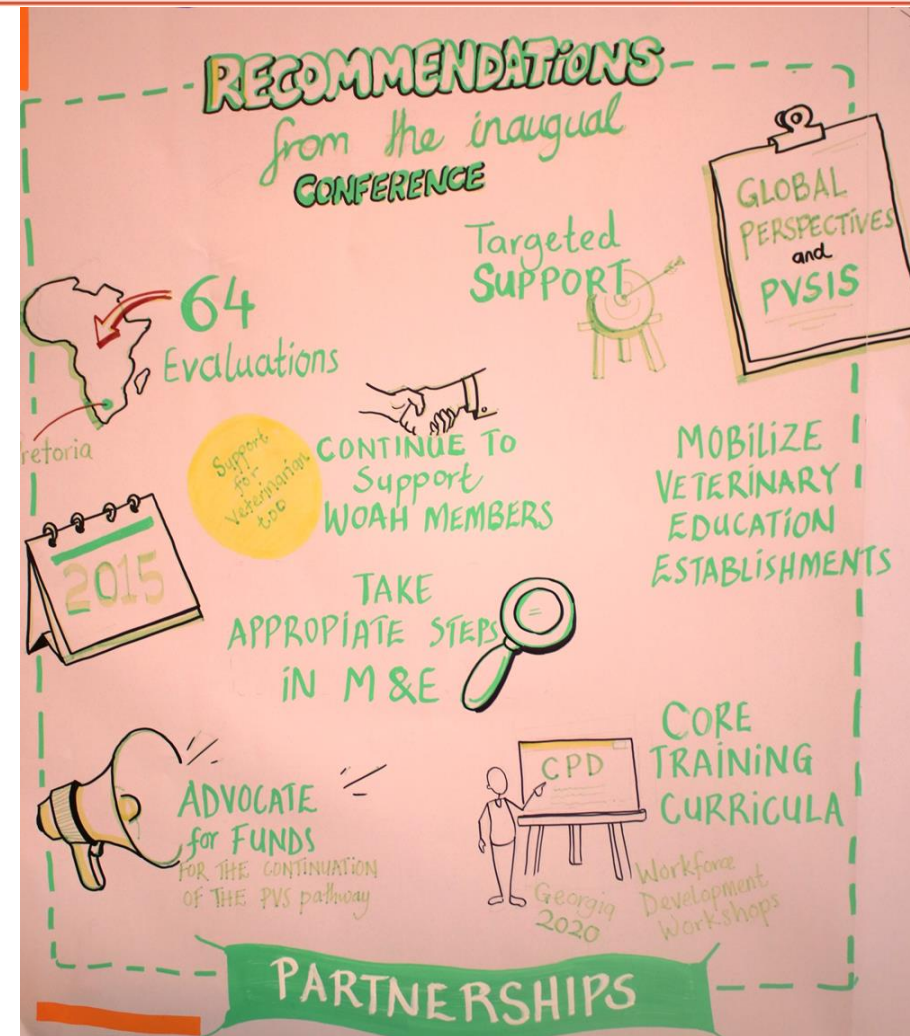 RECOMMENDATIONS
from the inaugual
CONFERENCE
GLOBAL
PERSPECTIVES
and
PVSIS
Targeted
SUPPORT
64
Evaluations
retoria
Support
for
Veterinarian
too
CONTINUE TO
Support
WOAH MEMBERS
MOBILIZE
VETERINARY
EDUCATION
ESTABLISHMENTS
2015
TAKE
APPROPIATE STEPS
IN M & E
ADVOCATE
for FUNDS
FOR THE CONTINUATION
OF THE PVS pathway
CPD
CORE
TRAINING
CURRICULA
Georgia
2020
Workforce
Development
Workshops
PARTNERSHIPS